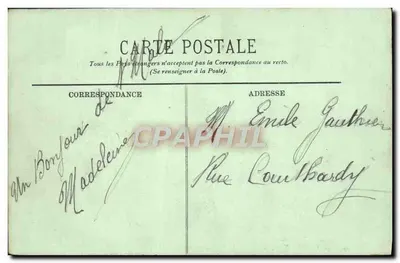 CARTE POSTALE
Tous les Pays étrangers n'acceptent pas la Correspondance au recto.
(Se renseigner à la Poste).
CORRESPONDANCE
ADRESSE
Un Bonjour de St Malo
Madeleine
M Emile Gauthier
Rue
CARTAPHIL